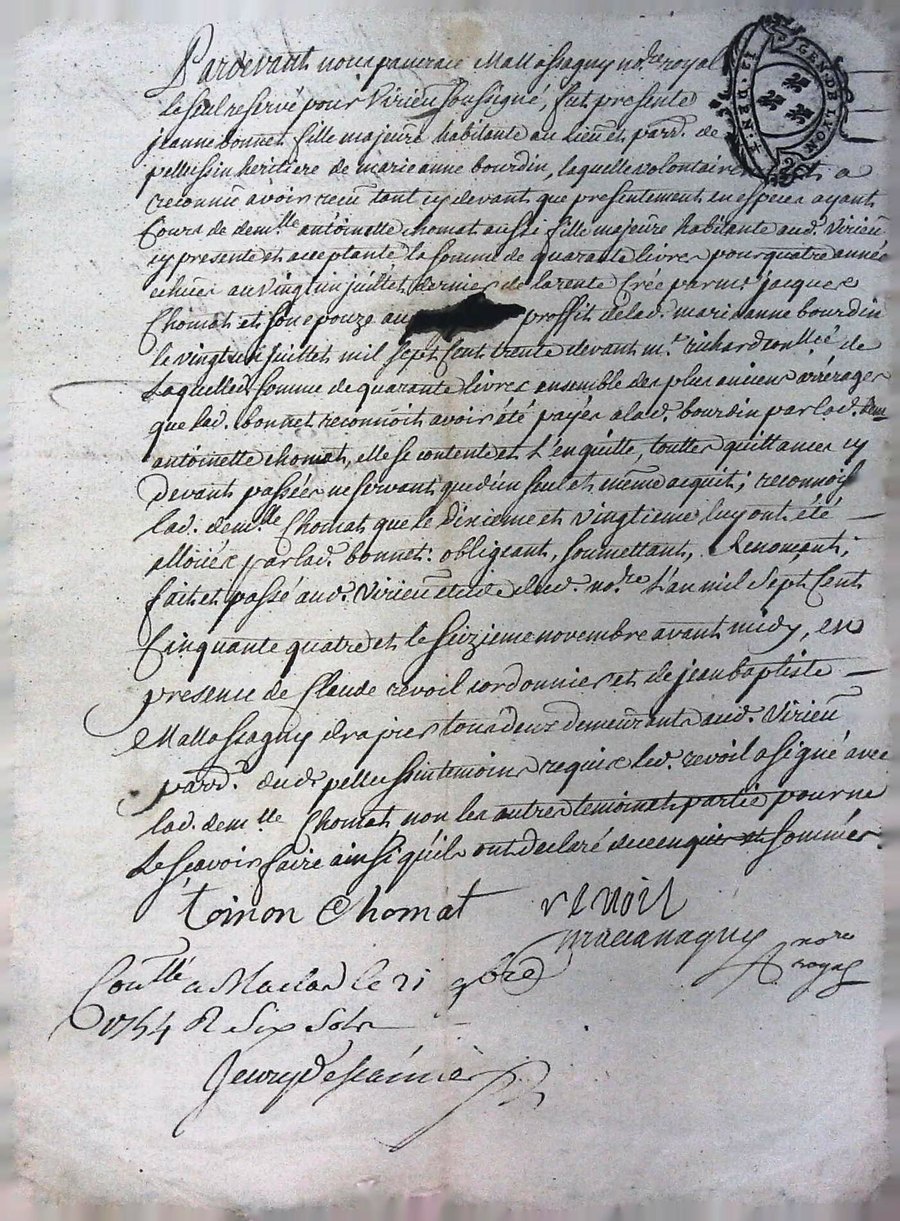 Pardevant nous pancrace Mallassagny no.re royal
le seul reservé pour Virieu soussigné, fut presente
jeanne bonnet fille majeure habitante au lieu et parr. de
pellussin heritiere de marie anne bourdin, laquelle volontairem.t a
reconnu avoir receu tant cy devant que presentement en especes ayant
Cours de dem.lle antoinette chomat aussi fille majeure habitante aud. Virieu
cy presente et acceptante la somme de quarante livres pour quatre années
echues au vingt un juillet dernier de la rente Créé par mr jacques
Chomat et son epouze au proffit de lad. marie anne bourdin
le vingt un juillet mil sept Cent trente devant m.e richard de
Laquelle somme de quarante livres ensemble des plus anciens arrérages
que lad. bonnet reconnoit avoir été payés a lad. bourdin par lad. dem.lle
antoinette chomat, elle se contente et l'en quitte, touttes quittances cy
devant passées ne servant que d'un seul et même acquit; reconnoist
lad. dem.lle Chomat que le dixieme et vingtieme luy ont été
alloués par lad. bonnet. obligeant, soumettant, Renonçant,
fait et passé aud. Virieu etude dud. no.re L'an mil Sept Cent
Cinquante quatre et le seizieme novembre avant midy, en
presence de Claude revoil cordonnier et de jean baptiste
Mallassagny drapier tous deux demeurants aud. Virieu
parr. dud. pellussin temoins requis led. revoil a signé avec
lad. dem.lle Chomat non les autres temoin et partie pour ne
Le sçavoir faire ainsi qu'ils ont declaré de ce enquis et sommés.
toinon Chomat revoil
mallassagny no.re
royal
Con.llé a Maclas le 21 9bre
1754 R Six Sols
GEN. DE LYON